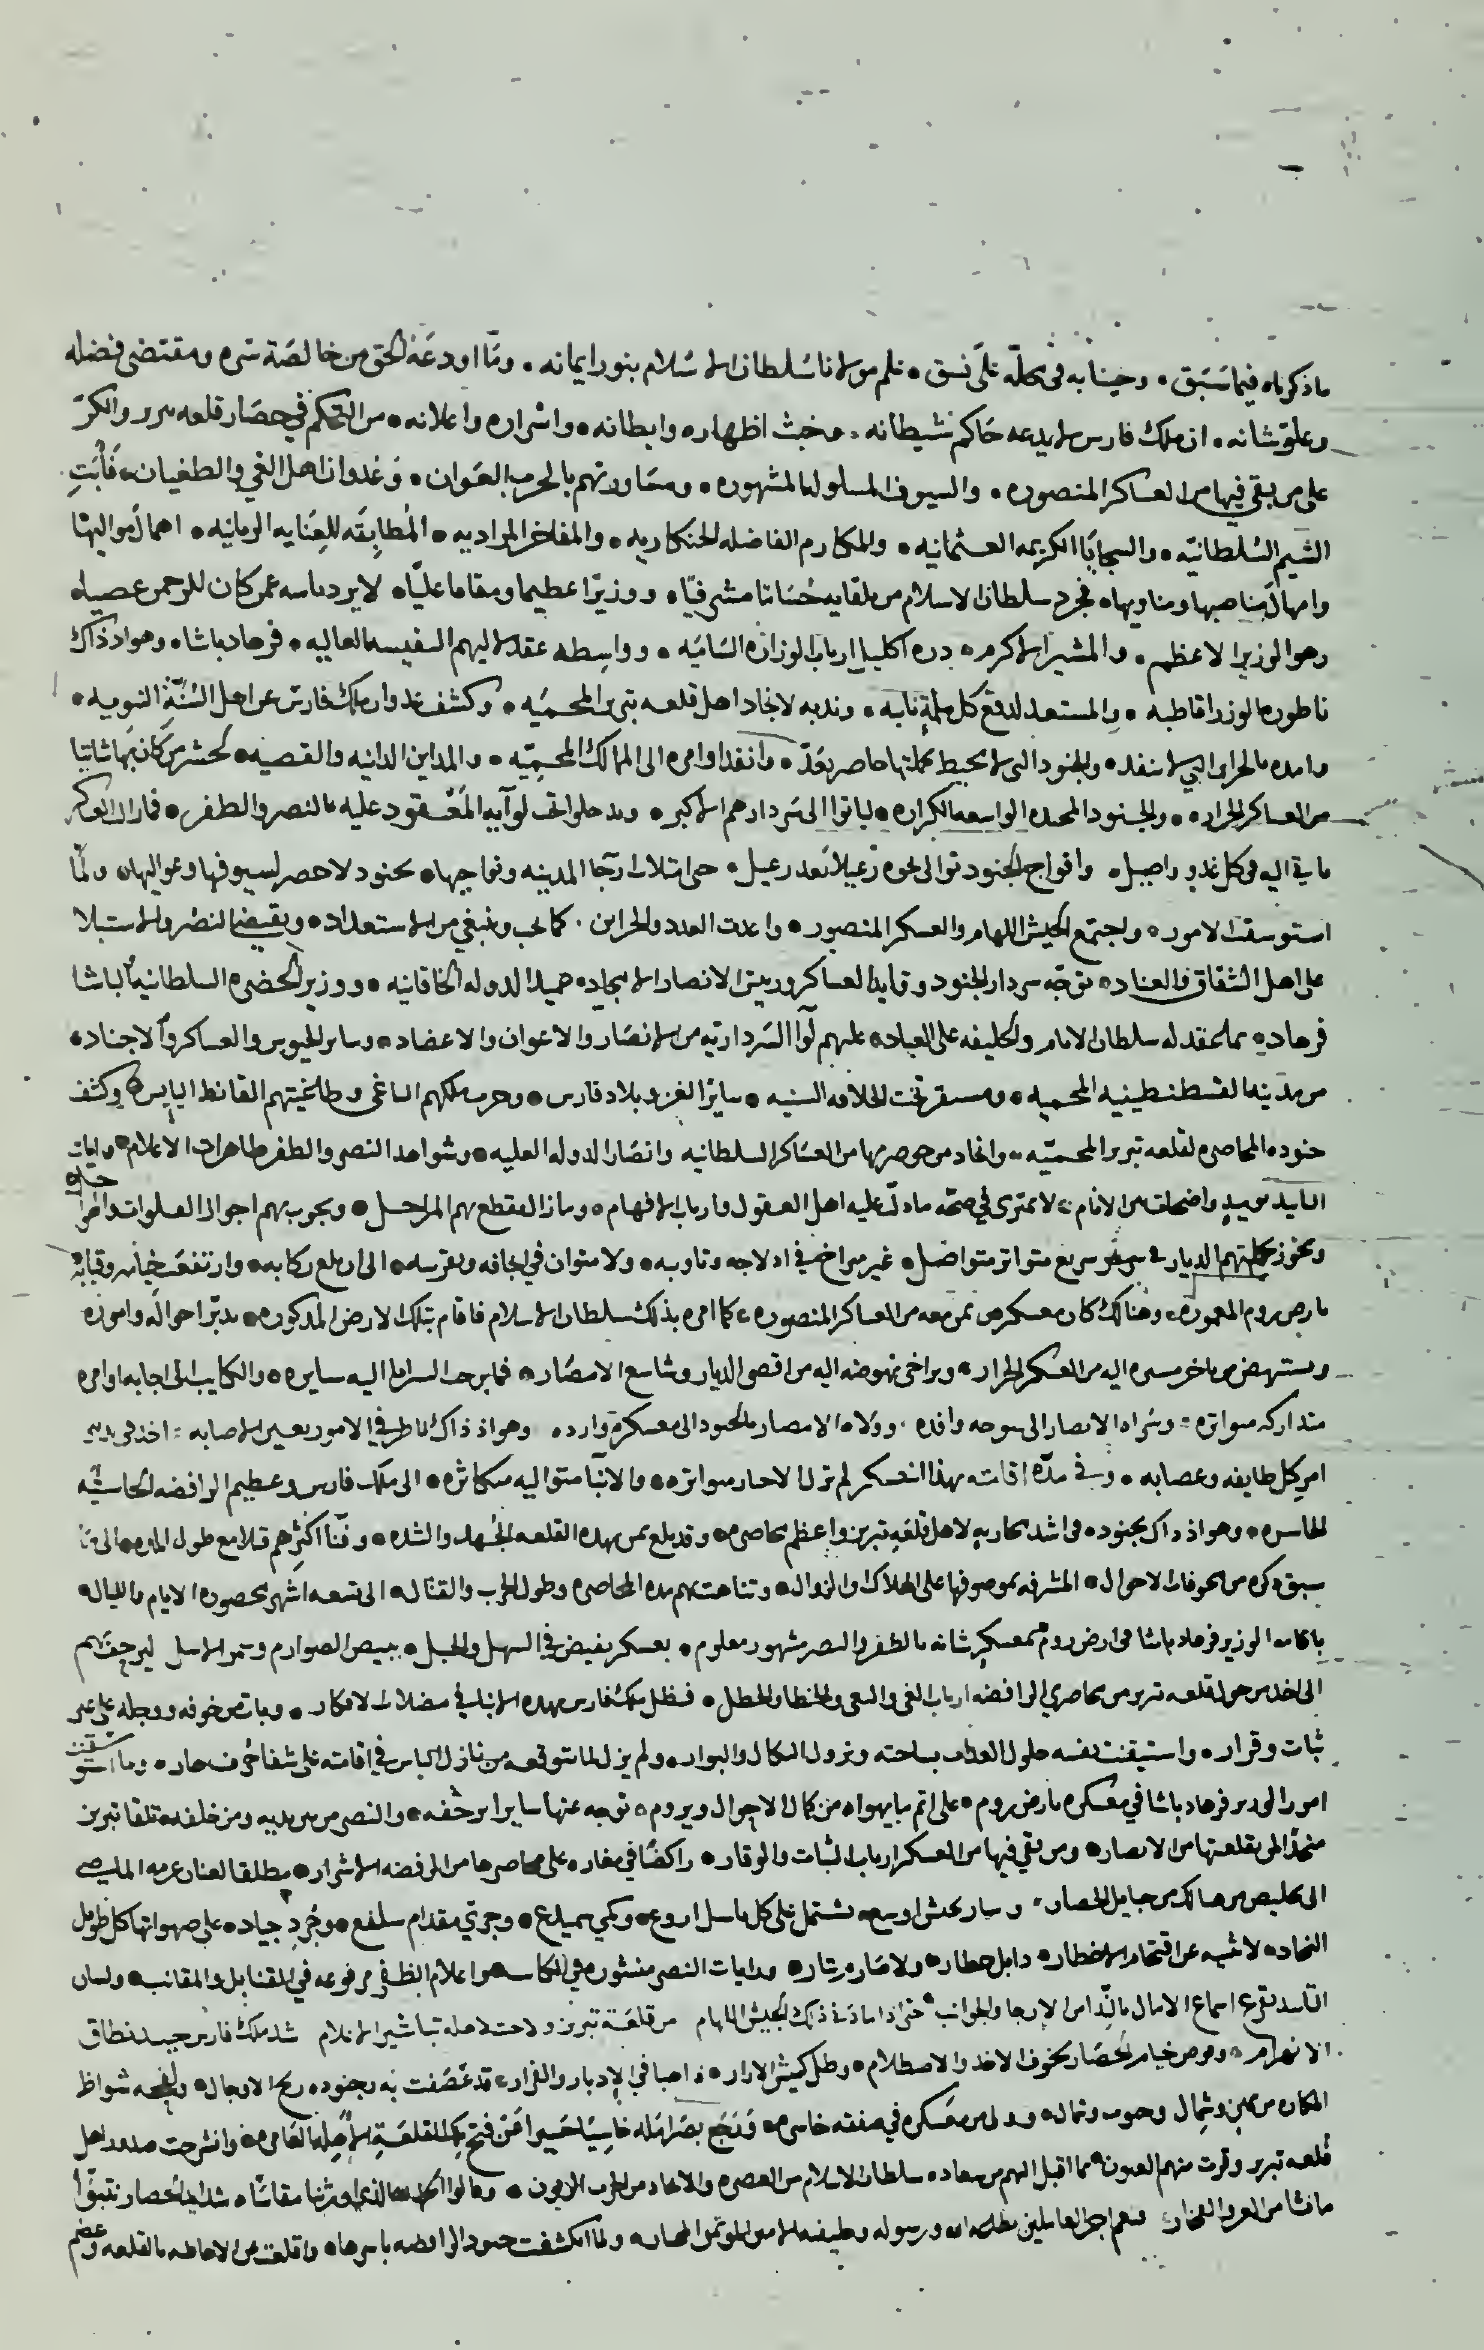 ماذكرناه فيما سَبَق، وجينا به في محلّه على نسق، علم مولانا سُلطان الاسلام بنور ايمانه، وممّا اودعَه الحق من خالصَة سره ومقتضى فضله
وعلوّ شانه، ان ملك فارس لا يدعه حَاكم شيطانه، وخبث اظهاره وابطانه، واسْراره واعلانه، من التحكم في حصَار قلعه تبريز والكرّ
على من بقى فيها من العساكر المنصوره، والسيوف المسلوله المشهوره، ومحاورتهم بالحرب العَوان، وعُدوان اهل الغي والطغيان، فأبَت
الشيم السُلطانيّه، والسجايا الكريمه العثمانيه، والمكارم الفاضله الخنكاريه، والمفاخر المراديه، المُطابِقَه للعِنايه الربانيّه، اهمال مواليها
وامهال مناصبها ومناويها، فجرد سلطان الاسلام من تلقايه حُسَامًا مشرفيّا، ووزيرًا عظيما ومقاما عليّا، لا يرد باسه عمن كان للرحمن عصيا،
وهو الوزير الاعظم، والمشير الاكرم، درة اكليل ارباب الوزاره السَاميَه، وواسطه عقدها ليهم النفيسه العاليه، فرهاد باشا، وهو اذ ذاك
ناطوره الوزرا قاطبه، والمستعد لدفع كل ملمةٍ نايبه، وندبه لانجاد اهل قلعه تبريز المحميّه، وكشف عدوان ملك فارس عن اهل السُنَّةِ النبويه،
وامده بالخزاين التي لا تنفد، والجنود التي لا يحيط بجملتها حاصر بعَدّ، وانفذ اوامره الى الممالك المحميّه، والمداين الدانيه والقصيه، لحشر من كان بها شاتيا
من العساكر الجراره، والجنود المجنده الواسعه الكراره، لياتوا الى سَردارهم الاكبر، ويدخلوا تحت لوآيه المَعْقود عليه بالنصر والظفر، فما زال العسكر
ياتي اليه في كل غدو واصيل، وافواج الجنود توالى نحوه رَعيلا بَعد رعيل، حتى امتلات ارجا المدينه ونواحيها، بجنود لا حصر لسيوفها وعواليها، ولمّا
استوسقت الامور، واجتمع الجيش اللهام والعسكر المنصور، واعدت العدد والخزاين، كما يجب وينبغي من الاستعداد، ويقتضي النصر والاستيلا
على اهل الشقاق والعناد، توجّه سردار الجنود وقايد العساكر ورييس الانصار الامجاد، حميد الدوله الخاقانيه، ووزير الحضره السلطانيه الباشا
فرهاد، بما عقد له سلطان الانام والخليفه على العباد، عليهم لوآ السَردارّيه من الانصَار والاعوان والاعضاد، وساير الجيوش والعساكر والاجناد،
من مدينه القسطنطينيه المحميه، ومستقر تخت الخلافه السنيه، سايرا لغزو بلاد فارس، وحرب ملكهم الباغي وطاغيتهم القانط اليايس، وكشف
جنوده المحاصره لقلعه تبريز المحميّه، وانجاد من حوصر بها من العسَاكر السلطانيه وانصَار الدوله العليه، وشواهد النصر والظفر ظاهرات الاعلام، وايات
التاييد واضحات بين الانام، لا يمترى في صحّه ما دلّت عليه اهل العقول وارباب الافهام، وما زال يقطع بهم المراحل، ويجوب بهم اجواز الفلوات والمراحل
ويجوز بجملتهم الديار في سير سريع متواتر متواصل، غير متراخٍ في ادلاجه وتاويبه، ولا متوان في ايجافه وتقريبه، الى ان بلغ ركابه، وارتفعت خيامه وقبابه،
بارض روم المعموره، وهنالك كان معسكره بمن معه من العساكر المنصوره، كما امره بذلك سلطان الاسلام فاقام بتلك الارض المذكوره، يدبّر احواله واموره
ويستنهض من تاخر مسيره اليه من العسكر الجرار، وتراخى نهوضه اليه من اقصى الديار وشاسع الامصَار، فما برحت السرايا اليه سايره، والكتايب الى اجابه اوامره
متداركه متواتره، وسُراه الانصار الى سوحه وافده، وولاه الامصار بالجنود الى معسكره وارده، وهو اذ ذاك ناظر في الامور بعين الاصابه، اخذ في تدبير
امر كل طايفه وعصابه، وفي مدّه اقامته بهذا المعسكر لم تزل الاخبار متواتره، والانبآ متواليه متكاثره، الى ملك فارس وعظيم الرافضه الخاسيه
الخاسره، وهو اذ ذاك بجنوده في اشد محاربه لاهل قلعه تبريز واعظم محاصره، وقد بلغ بمن بهذه القلعه الجُهد والشده، وفنآ اكثرهم قتلا مع طول المده، الى ما
سبق ذكره من مخوفات الاحوال، المشرفه بموصوفها على الهلاك والزوال، وتناهت بهم مده المحاصره وطول الحرب والقتال، الى تسعه اشهر محصوره الايام والليال،
باقامه الوزير فرهاد باشا في ارض روم، بمعسكرٍ شانه بالظفر والنصر مشهور معلوم، بعسكر يفيض في السهل والجبل، ببيض الصوارم وسمر الاسل، ليزحف بهم
الى اخذ من حول قلعه تبريز من محاصري الرافضه ارباب الغي والبغي والخطا والخطل، فظل ملك فارس بهذه الانبا في مضلات الافكار، وبات من خوفه ووجله على غير
ثبات وقرار، واستيقنت نفسه حلول العذاب بساحته ونزول النكال والبوار، ولم يزل لما يتوقعه من نازل الباس في اقامته على شفا جُرف هار، ولما استوسقت
امور الوزير فرهاد باشا في معسكره بارض روم، على اتم ما يهواه من كمال الاحوال ويروم، توجه عنها سايرا برَحْفه، والنصر من بين يديه ومن خلفه، تلقا تبريز
منجدًا لمن بقلعتها من الانصار، ومن بقي فيها من العسكر ارباب الثبات والوقار، راكضًا في مغاره على محاصرها من الرفضه الاشرار، مطلقا لعنان عزمه
الى تخليص من هنالك من حبايل الحصار، وسار بجيش اوسع، يشتمل على كل باسل اروع، وكمي سميدع، وجري مقدام سلفع، وجُردٍ جياد، على صهواتها كل طويل
النجاد، لا تثنيه عن اقتحام الاخطار، ورايات النصر منشوره في الكتايب، واعلام الظفر مرفوعه في القنابل والمقانب، ولسان
التاييد تقرع اسماع الامال بالنِّدا من الارجا والجوانب، حتى اذا ما دَنى ذلك الجيش اللهام من قلعَة تبريز ولاحت لاهله تباشير الاعلام، شد ملك فارس حينيذ نطاق
الانهزام، وقوض خيام الحصَار بخوف الاخذ والاصطلام، وظل كميش الازار، ذاهبا في الادبار والفرار، قد عَصَفت به وبجنوده ريح الاوجال، ولفحه شواظ
المكان من يمين وشمال، وجنوب وشمال، وولى من معسكره في صفقه خاسره، ورَجَع بصرامله خاسيًا حَسيرا عن فتح تلك القلعَة الآهله العامره، وانشرحت صدور اهل
قلعه تبريز وقرت منهم العيون، بما اقبل اليهم من امداد سلطان الاسلام من النصره والانجاد من الحرب الزبون، وقالوا الحمد لله الذي اورثنا مقامًا، شدايد الحصار نتبوّأ
ما نشا من العز والفخار، فنعم اجر العاملين بطاعه الله ورسوله وخليفه الاسلام، ولما انكشفت جنود الرافضه باسرها، واقلعت عن الاحاطه بالقلعه وعظم